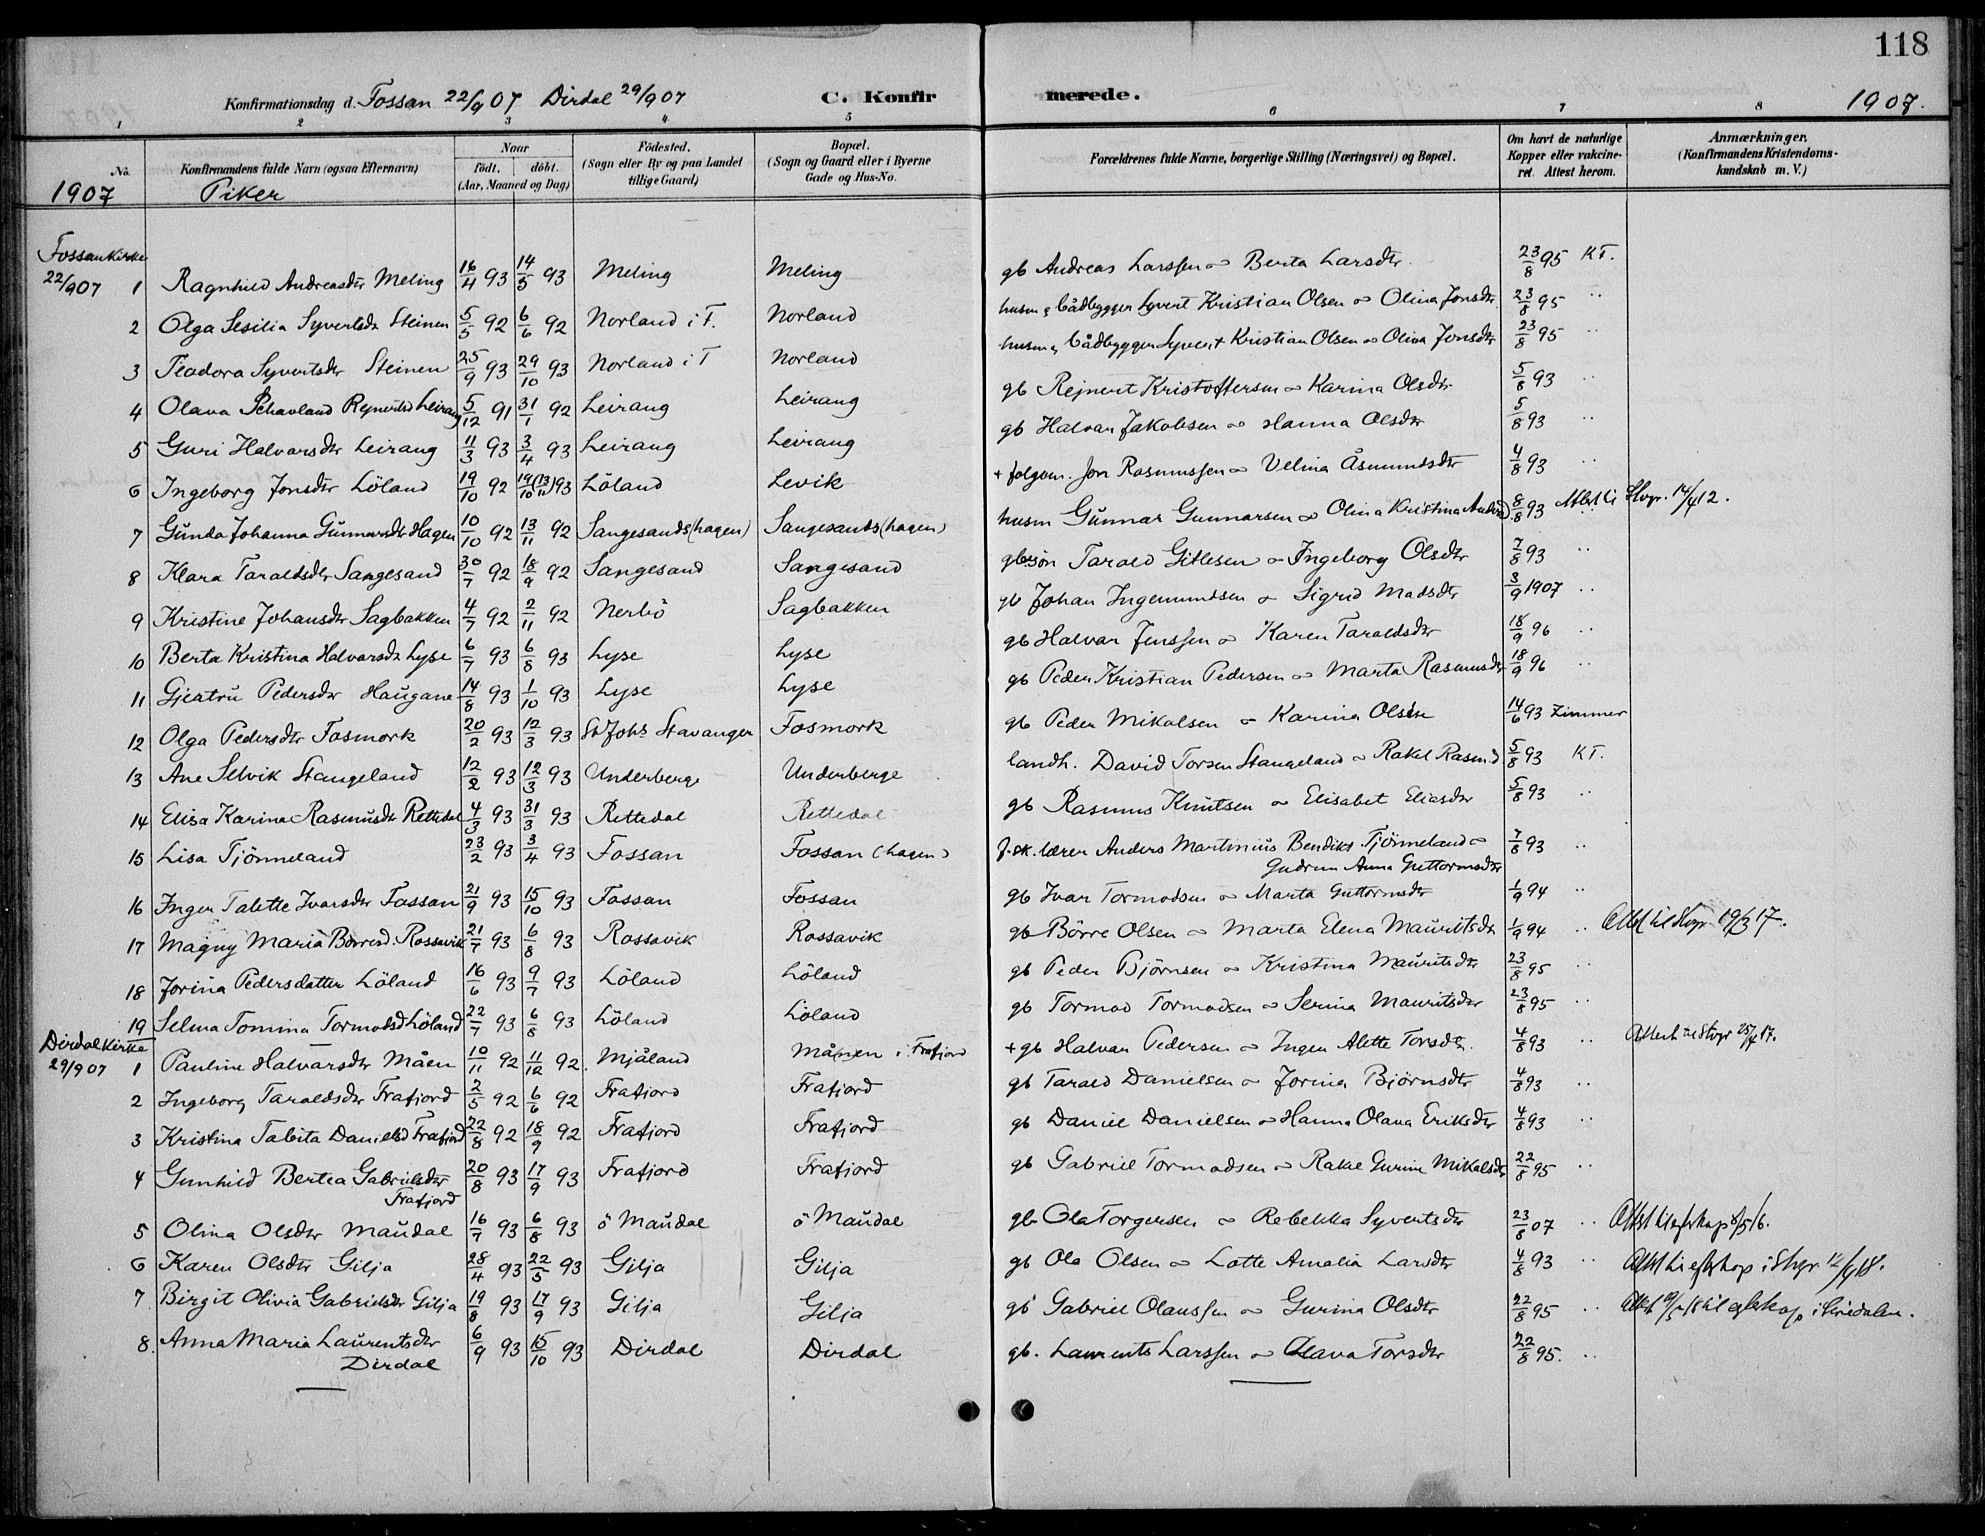 118
Konfirmationsdag d. Fossan 22/9 07 Dirdal 29/9 07 C. Konfirmerede. 1907.
1 2 3 4 5 6 7 8
No. Konfirmandens fulde Navn (ogsaa Efternavn) Naar født. døbt. (Aar, Maaned og Dag) Fødested. (Sogn eller By og paa Landet tillige Gaard) Bopæl. (Sogn og Gaard eller i Byerne Gade og Hus-No. Forældrenes fulde Navne, borgerlige Stilling (Næringsvei) og Bopæl. Om havt de naturlige Kopper eller vakcineret. Attest herom. Anmærkninger. (Konfirmandens Kristendomskundskab m. V.)
1907 Piker
Fossan Kirke
22/9 07 1 Ragnhild Andreasdtr Meling 16/4 93 14/5 93 Meling Meling gb Andreas Larssen o Berta Larsdtr 23/8 95 KT.
2 Olga Sesilia Syvertsdr Steinen 5/5 92 6/6 92 Norland i F. Norland husm & bådbygger Syvert Kristian Olsen o Olina Jonsdtr 23/8 95 "
3 Teodora Syvertsdtr Steinen 25/9 93 29/10 93 Norland i F Norland husm & bådbygger Syvert Kristian Olsen o Olina Jonsdtr 23/8 95 "
4 Olava Schavland Rejnertsd Leirang 5/12 91 31/1 92 Leirang Leirang gb Rejnert Kristoffersen o Karina Olsdtr 5/8 93 "
5 Guri Halvarsdtr Leirang 11/3 93 3/4 93 Leirang Leirang gb Halvar Jakobsen o Hanna Olsdtr 5/8 93 "
6 Ingeborg Jonsdtr Löland 19/10 92 19/10 (13/11) 93 Löland Levik + folgem. Jon Rasmussen o Velina Åsmundsdtr 4/8 93 "
7 Gunda Johanna Gunnarsdtr Hagen 10/10 92 13/11 92 Sangesands (hagen) Sangesands (hagen) husm Gunnar Gunnarsen o Olina Kristina Andrd. 8/8 93 Attest til Stvgr. 14/4 12.
8 Klara Taraldsdtr Sangesand 30/7 92 18/9 92 Sangesand Sangesand gbsön Tarald Gitlesen o Ingeborg Olsdtr 7/8 93 "
9 Kristine Johansdtr Sagbakken 4/7 92 2/11 92 Nerbö Sagbakken gb Johan Ingemundsen o Sigrid Madsdtr 3/9 1907 "
10 Berta Kristina Halvarsdr Lyse 6/7 93 6/8 93 Lyse Lyse gb Halvar Jenssen o Karen Taraldsdtr 18/9 96 "
11 Gjeatru Pedersdtr Haugane 14/8 93 1/10 93 Lyse Lyse gb Peder Kristian Pedersen o Marta Rasmusdtr 18/9 96 "
12 Olga Pedersdtr Fosmork 20/2 93 12/3 93 St Johs Stavanger Fosmork gb Peder Mikalsen o Karina Olsdtr 14/6 93 Zimmer
13 Ane Selvik Stangeland 12/2 93 12/3 93 Underberge Underberge landh. David Torsen Stangeland o Rakel Rasm.d. 5/8 93 KT.
14 Elisa Karina Rasmusdtr Rettedal 4/3 93 31/3 93 Rettedal Rettedal gb Rasmus Knutsen o Elisabet Eliasdtr 5/8 93 "
15 Lisa Tjönneland 23/2 93 3/4 93 Fossan Fossan (hagen) f.sk.lærer Anders Martinius Bendiks Tjönneland o 7/8 93 "
Gudrun Anna Guttormsdtr
16 Inger Talette Ivarsdtr Fossan 21/9 93 15/10 93 Fossan Fossan gb Ivar Tormodsen o Marta Guttormsdtr 1/9 94 "
17 Magny Maria Börresd. Rossavik 21/7 93 6/8 93 Rossavik Rossavik gb Börre Olsen o Marta Elena Mauritsdtr 1/9 94 " Attst til Stvgr 19/3 17.
18 Jorina Pedersdatter Löland 16/6 93 9/7 93 Löland Löland gb Peder Björnsen o Kristina Mauritsdtr 23/8 95 "
19 Selma Tomina Tormodsd Löland 22/7 93 6/8 93 Löland Löland gb Tormod Tormodsen o Serina Mauritsdtr 23/8 95 "
Dirdal Kirke
29/9 07 1 Pauline Halvarsdtr Måen 10/11 92 11/12 92. Mjåland Månen i Frafjord + gb Halvar Pedersen o Inger Alette Torsdtr. 4/8 93 " Attest til Stvgr 25/4 17.
2 Ingeborg Taraldsdtr Frafjord 2/5 92 6/6 92 Frafjord Frafjord gb Tarald Danielsen o Jorina Björnsdtr 4/8 93 "
3 Kristina Tabita Danielsd Frafjord 22/8 92 18/9 92 Frafjord Frafjord gb Daniel Danielsen o Hanna Olava Eriksdtr 4/8 93 "
4 Gunhild Bertea Gabrielsdtr 20/8 93 17/9 93 Frafjord Frafjord gb Gabriel Tormodsen o Rakel Gurine Mikalsdtr 22/8 95 "
Frafjord
5 Olina Olsdtr Maudal 16/7 93 6/8 93 ö Maudal ö Maudal gb Ola Torgersen o Rebekka Syvertsdtr 23/8 07 " Attst til egteskap 8/5 16.
6 Karen Olsdtr Gilja 28/4 93 22/5 93 Gilja Gilja gb Ola Olsen o Lotte Amalia Larsdtr 4/8 93 " Attst til egteskap i Stvgr. 12/4 18.
7 Birgit Olivia Gabrielsdtr Gilja 19/8 93 17/9 93 Gilja Gilja gb Gabriel Olaussen o Gurina Olsdtr 22/8 95 " til egteskap i Siredalen.
8. Anna Maria Laurentsdtr 6/9 93 15/10 93 Dirdal Dirdal gb. Laurents Larssen o Olava Torsdtr 22/8 95. "
Dirdal